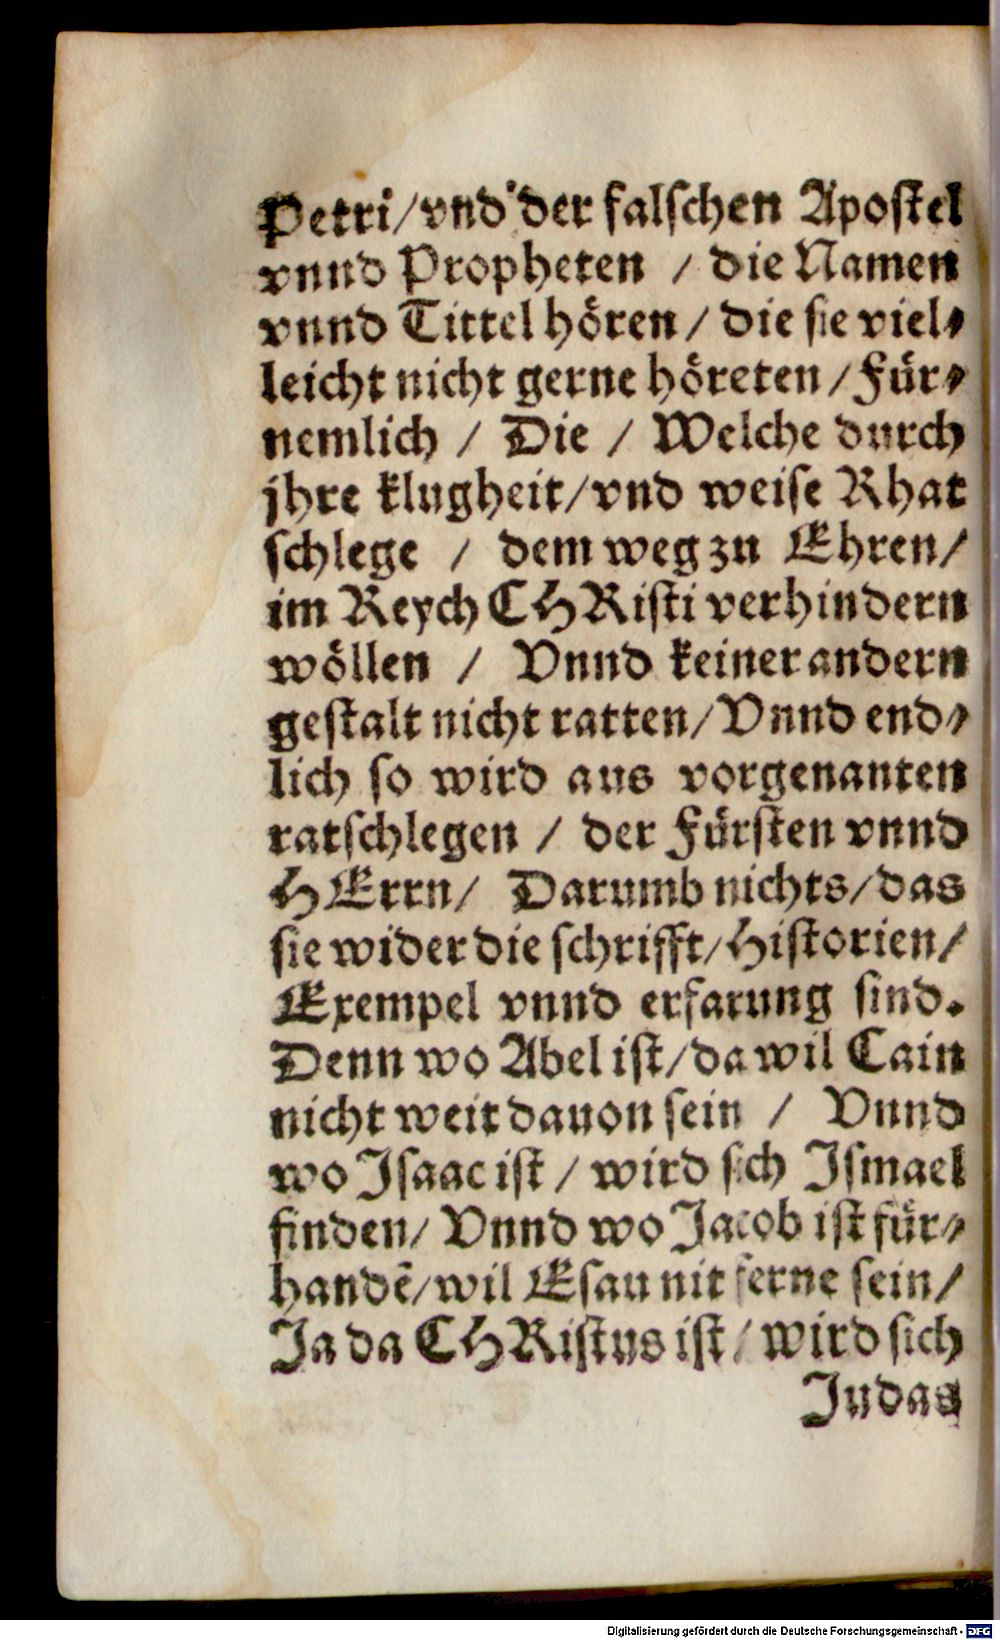 Petri/vnd der falschen Apostel
vnnd Propheten / die Namen
vnnd Tittel hören / die sie viel⸗
leicht nicht gerne höreten / Für⸗
nemlich / Die / Welche durch
jhre klugheit/vnd weise Rhat
schlege / dem weg zu Ehren/
im Reych CHRisti verhindern
wöllen / Vnnd keiner andern
gestalt nicht ratten/Vnnd end⸗
lich so wird aus vorgenanten
ratschlegen / der Fürsten vnnd
HErrn/ Darumb nichts/das
sie wider die schrifft/Historien/
Exempel vnnd erfarung sind.
Denn wo Abel ist/da wil Cain
nicht weit dauon sein / Vnnd
wo Isaac ist / wird sich Ismael
finden/ Vnnd wo Jacob ist für⸗
handẽ/wil Esau nit ferne sein/
Ja da CHRistus ist/ wird sich
Judas
Digitalisierung gefördert durch die Deutsche Forschungsgemeinschaft - DFG